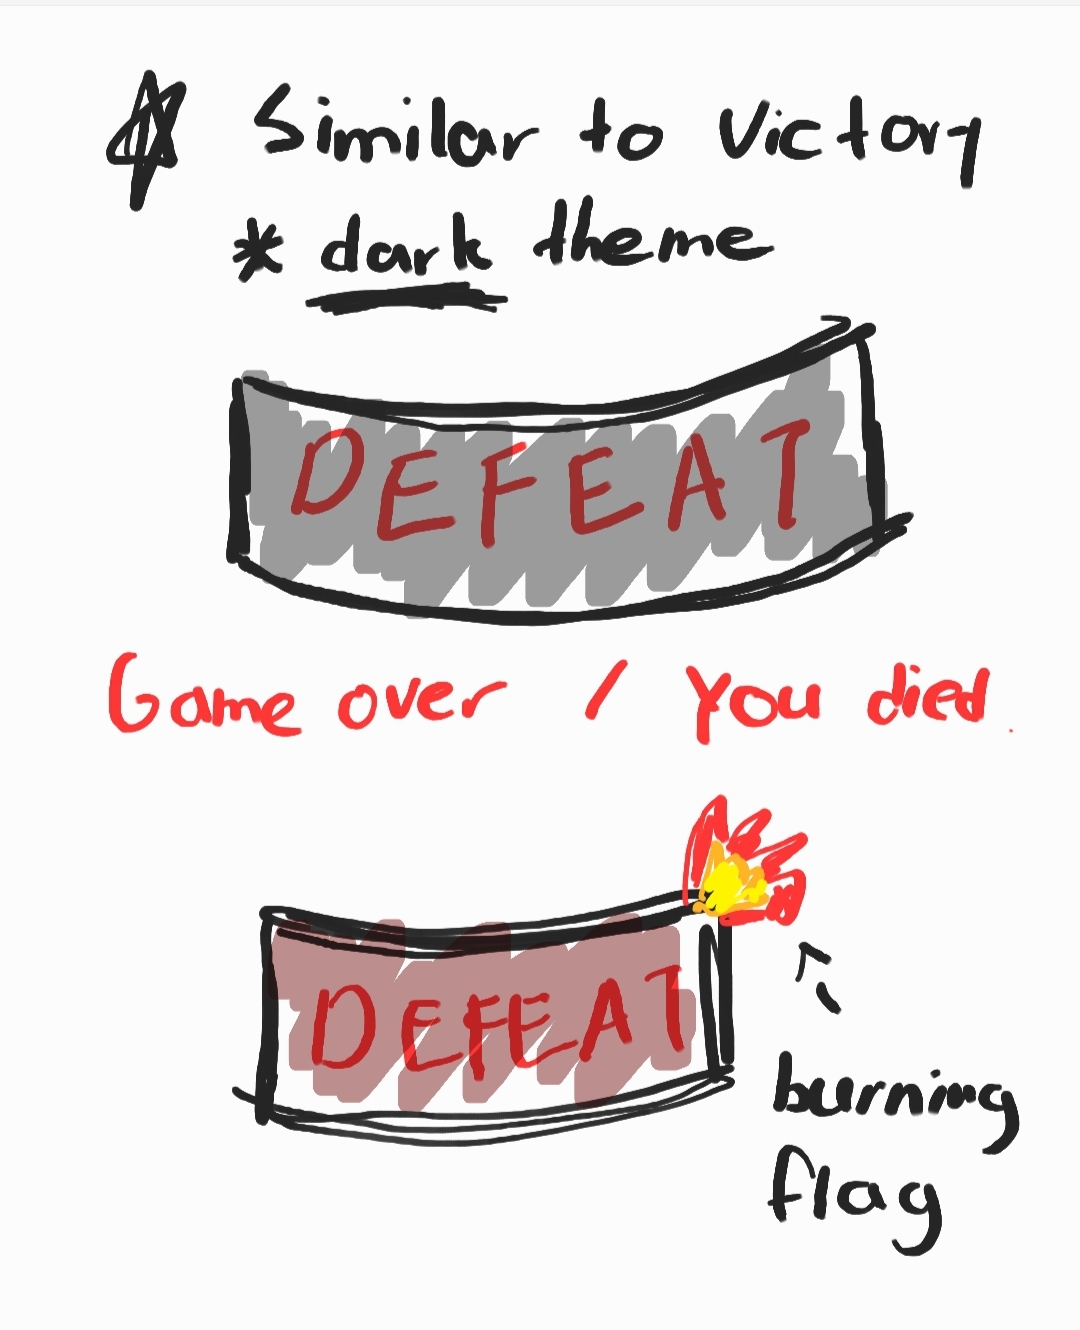 Similar to Victory
* dark theme
DEFEAT
Game over / You died
DEFEAT
burning
flag